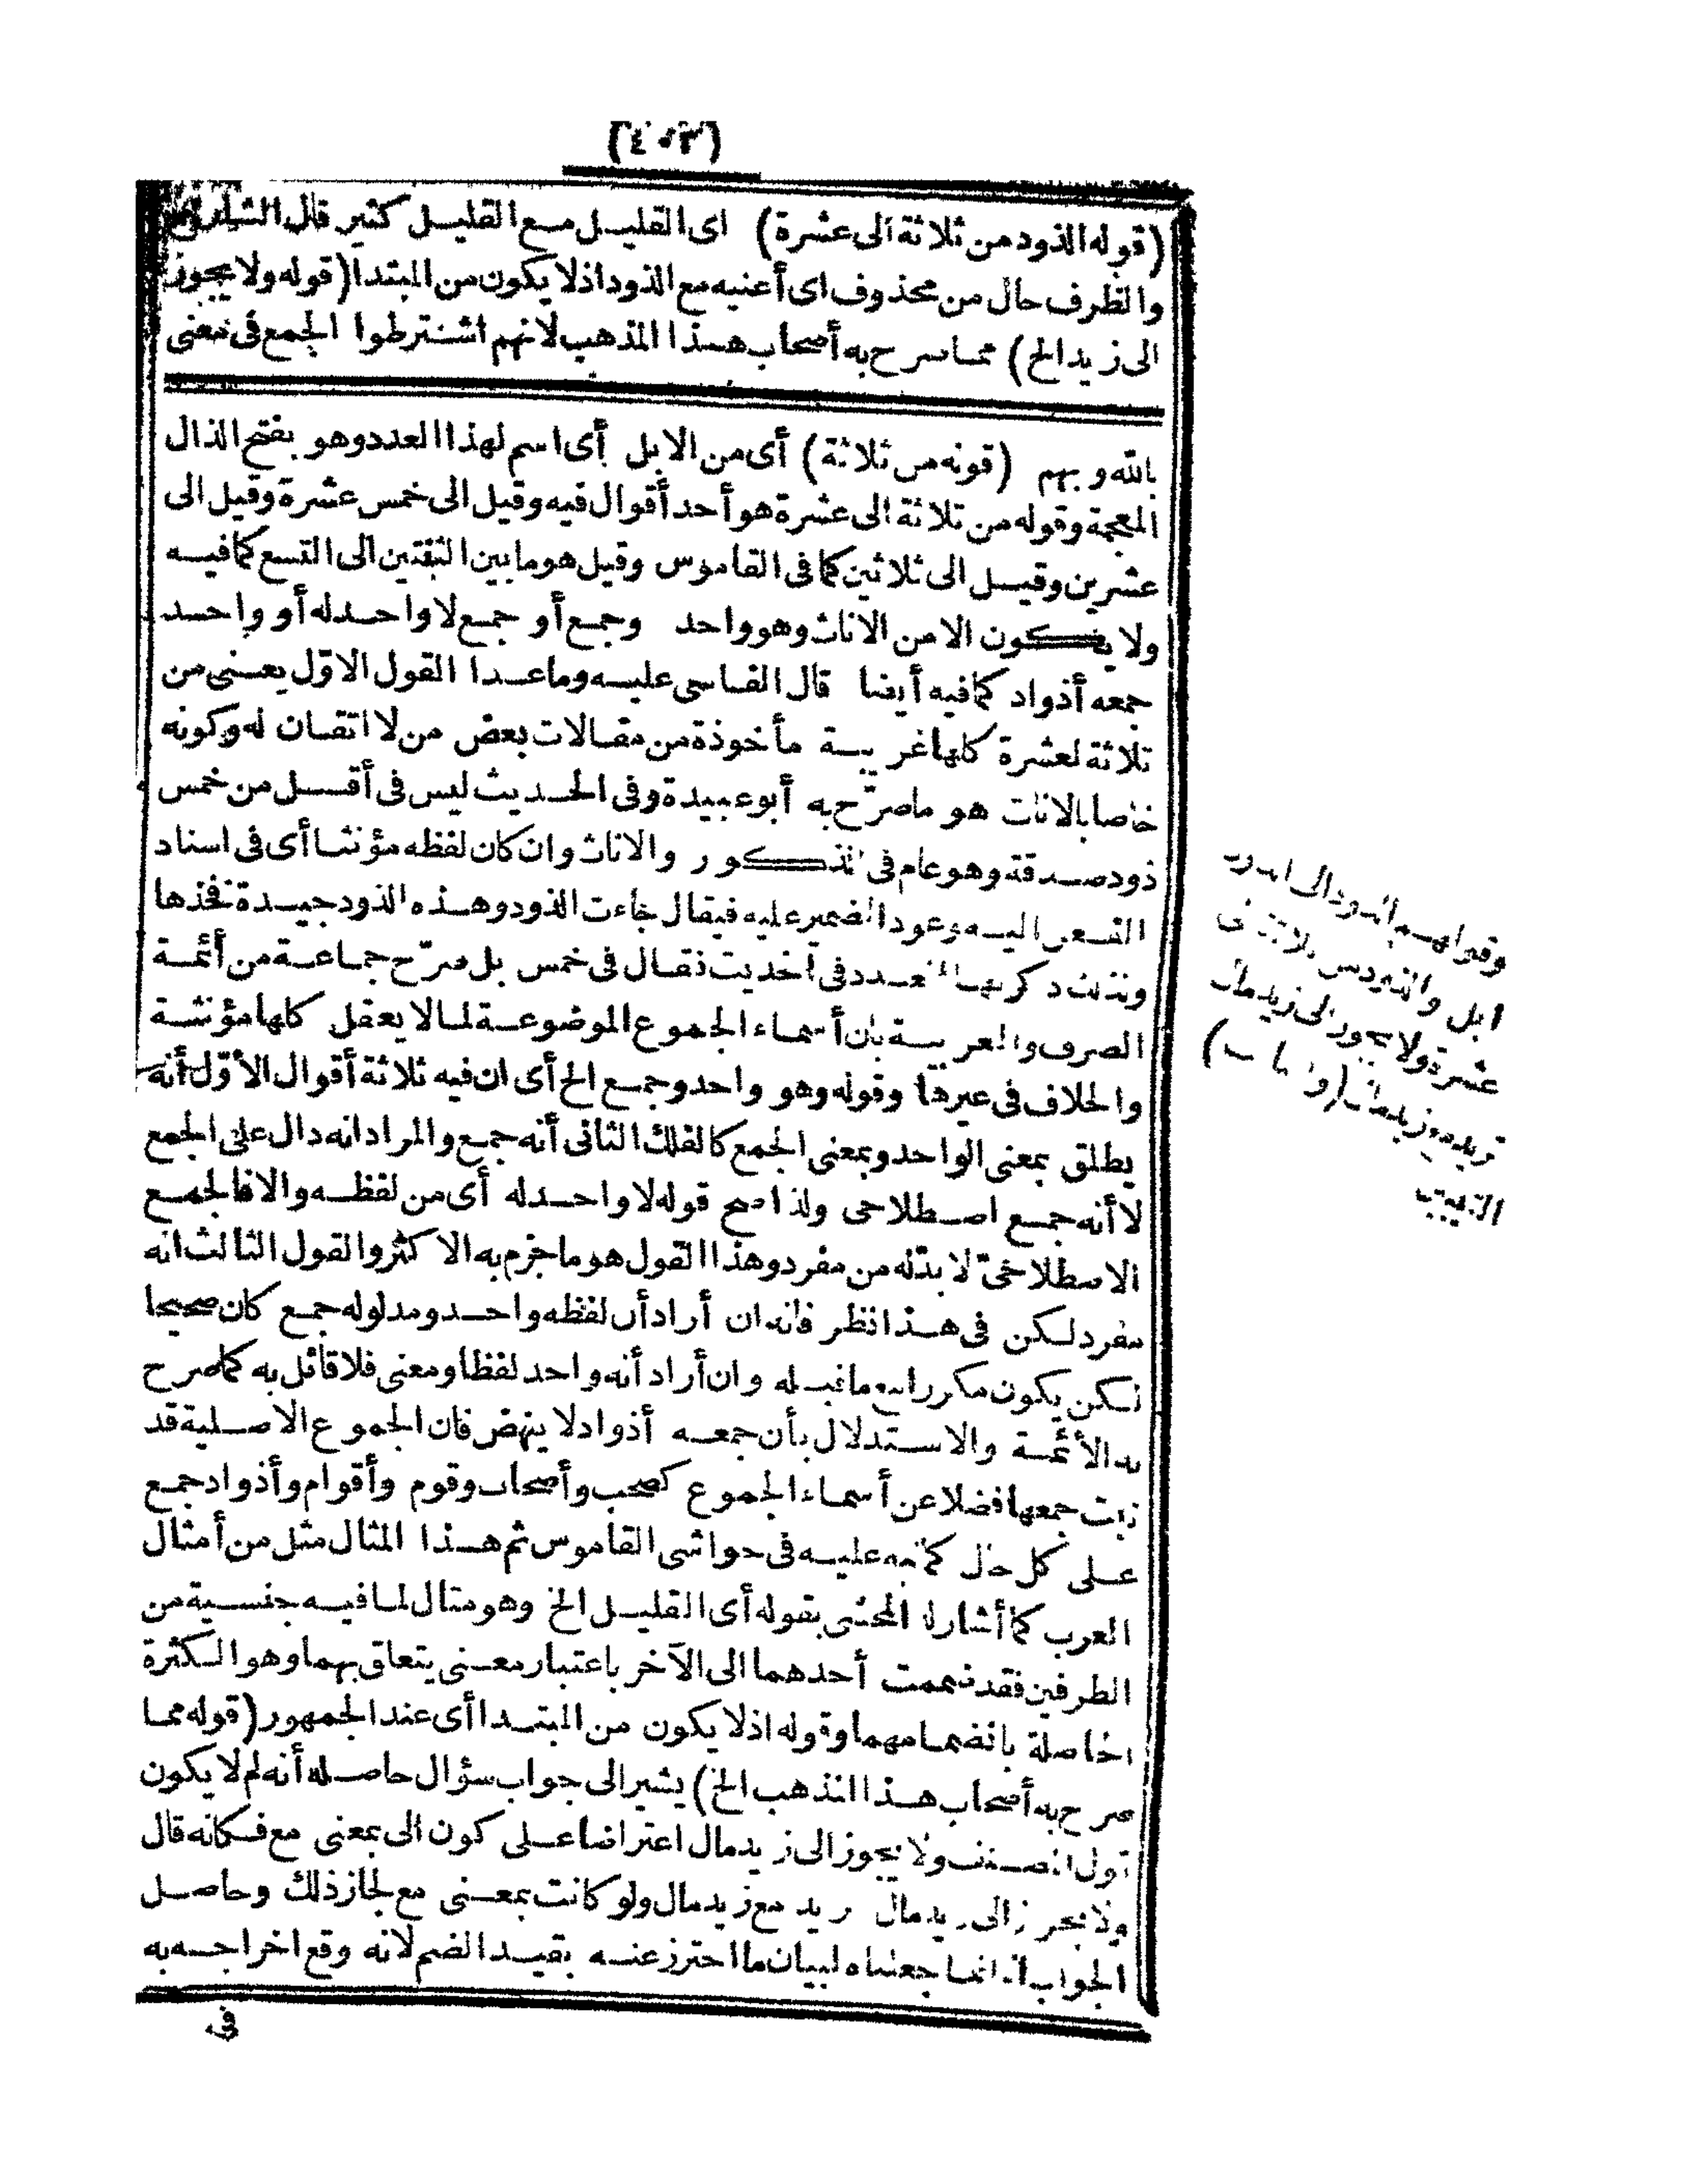 (٤٠٣)
(قوله الذود من ثلاثة الى عشرة) اى القليل مع القليل كثير قال الشارح
والظرف حال من محذوف اى أعنيه مع الذود اذ لا يكون من المبتدا (قوله ولا يجوز
الى زيد الخ) مما صرح به أصحاب هذا المذهب لانهم اشترطوا الجمع فى معنى
بالله وبهم (قوله من ثلاثة) أى من الابل أى اسم لهذا العدد وهو بفتح الذال
المعجمة وقوله من ثلاثة الى عشرة هو أحد أقوال فيه وقيل الى خمس عشرة وقيل الى
عشرين وقيل الى ثلاثين كما فى القاموس وقيل هو ما بين الثنتين الى التسع كما فيه
ولا يكون الا من الاناث وهو واحد وجمع أو جمع لا واحد له أو واحد
جمعه أذواد كما فيه أيضا قال الفاسى عليه وما عدا القول الاوّل يعنى من
ثلاثة لعشرة كلها غريبة مأخوذة من مقالات بعض من لا اتقان له وكونه
خاصا بالاناث هو ما صرّح به أبو عبيدة وفى الحديث ليس فى أقل من خمس
ذود صدقة وهو عام فى الذكور والاناث وان كان لفظه مؤنثا أى فى اسناد
الفعل اليه وعود الضمير عليه فيقال جاءت الذود وهذه الذود جيدة فخذها
ولذلك ذكر بها العدد فى الحديث فقال فى خمس بل صرّح جماعة من أئمة
الصرف والعربية بأن أسماء الجموع الموضوعة لما لا يعقل كلها مؤنثة
والخلاف فى غيرها وقوله وهو واحد وجمع الخ أى ان فيه ثلاثة أقوال الأوّل أنه
يطلق بمعنى الواحد وبمعنى الجمع كالفلك الثانى أنه جمع والمراد انه دال على الجمع
لا أنه جمع اصطلاحى ولذا صح قوله لا واحد له أى من لفظه والا فالجمع
الاصطلاحىّ لا بدّ له من مفرد وهذا القول هو ما جزم به الاكثر والقول الثالث انه
مفرد لكن فى هذا نظر فانه ان أراد أن لفظه واحد ومدلوله جمع كان صحيحا
لكن يكون مكررا مع ما قبله وان أراد أنه واحد لفظا ومعنى فلا قائل به كما صرح
به الأئمة والاستدلال بأن جمعه أذواد لا ينهض فان الجموع الاصلية قد
ثبت جمعها فضلا عن أسماء الجموع كصحب وأصحاب وقوم وأقوام وأذواد جمع
على كل حال كما نبه عليه فى حواشى القاموس ثم هذا المثال مثل من أمثال
العرب كما أشار له المحشى بقوله أى القليل الخ وهو مثال لما فيه جنسية من
الطرفين فقد ضممت أحدهما الى الآخر باعتبار معنى يتعلق بهما وهو الكثرة
الحاصلة بانضمامهما وقوله اذ لا يكون من المبتدا أى عند الجمهور (قوله مما
صرح به أصحاب هذا المذهب الخ) يشير الى جواب سؤال حاصله أنه لم لا يكون
قول المصنف ولا يجوز الى زيد مال اعتراضا على كون الى بمعنى مع فكانه قال
ولا يجوز الى زيد مال تريد مع زيد مال ولو كانت بمعنى مع لجاز ذلك وحاصل
الجواب انه انما جعلناه لبيان ما احترز عنه بقيد الضم لانه وقع اخراجه به
فى
ابل والذود من ثلاثة الى
عشرة ولا يجوز الى زيد مال
تريد مع زيد مال